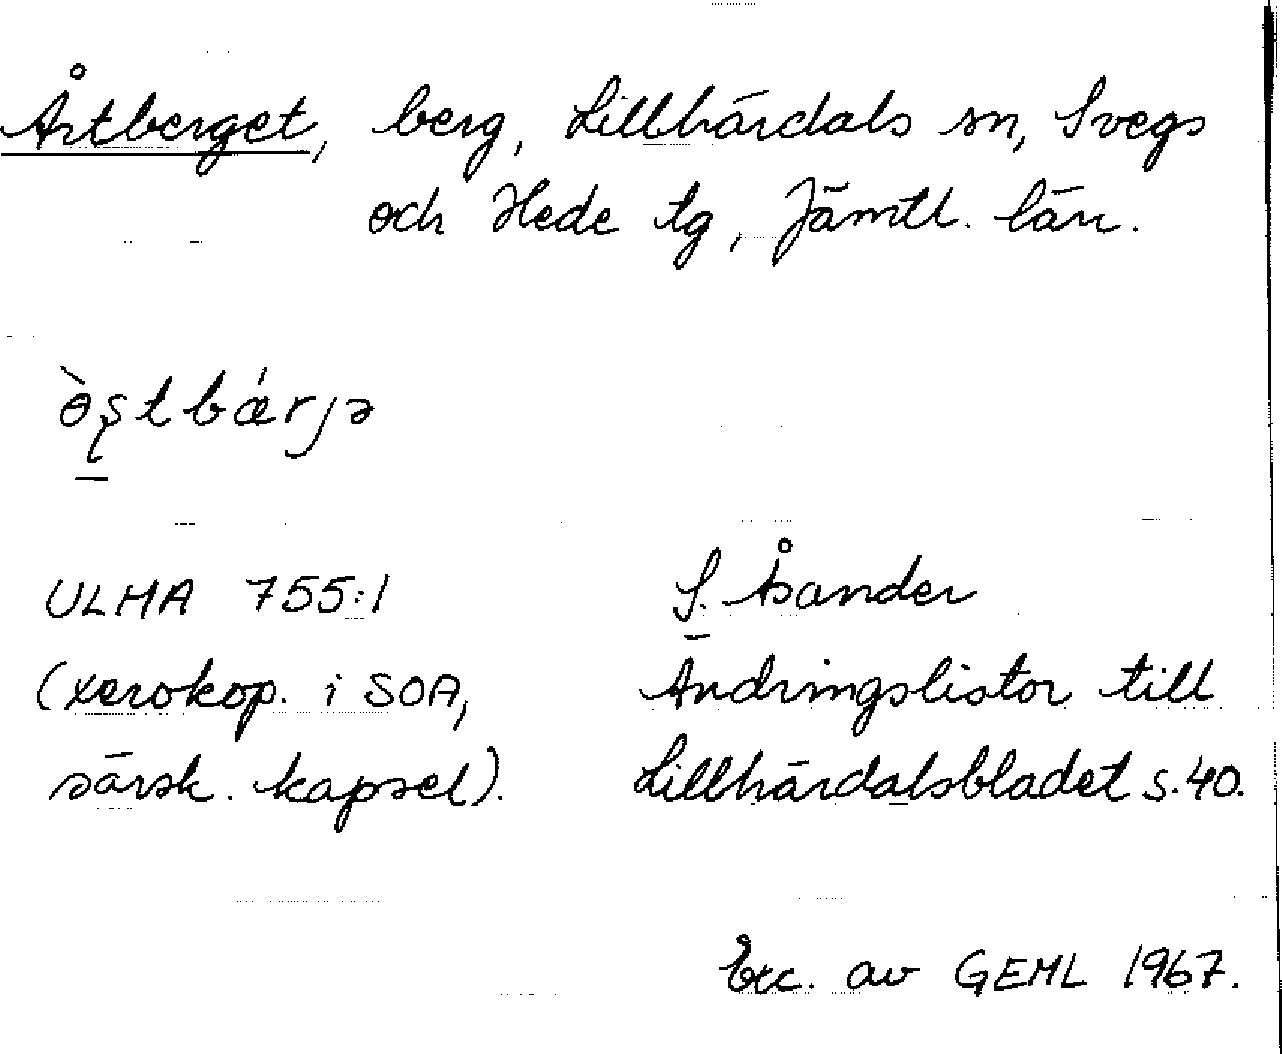 Årtberget, berg, Lillhärdals sn, Svegs
och Hede tg, Jämtl. län.
ULMA 755:1
S. Åsander
(xerokop. i SOA,
Ändringslistor till
särsk. kapsel).
Lillhärdalsbladet s.40.
Exc. av GEML 1967.